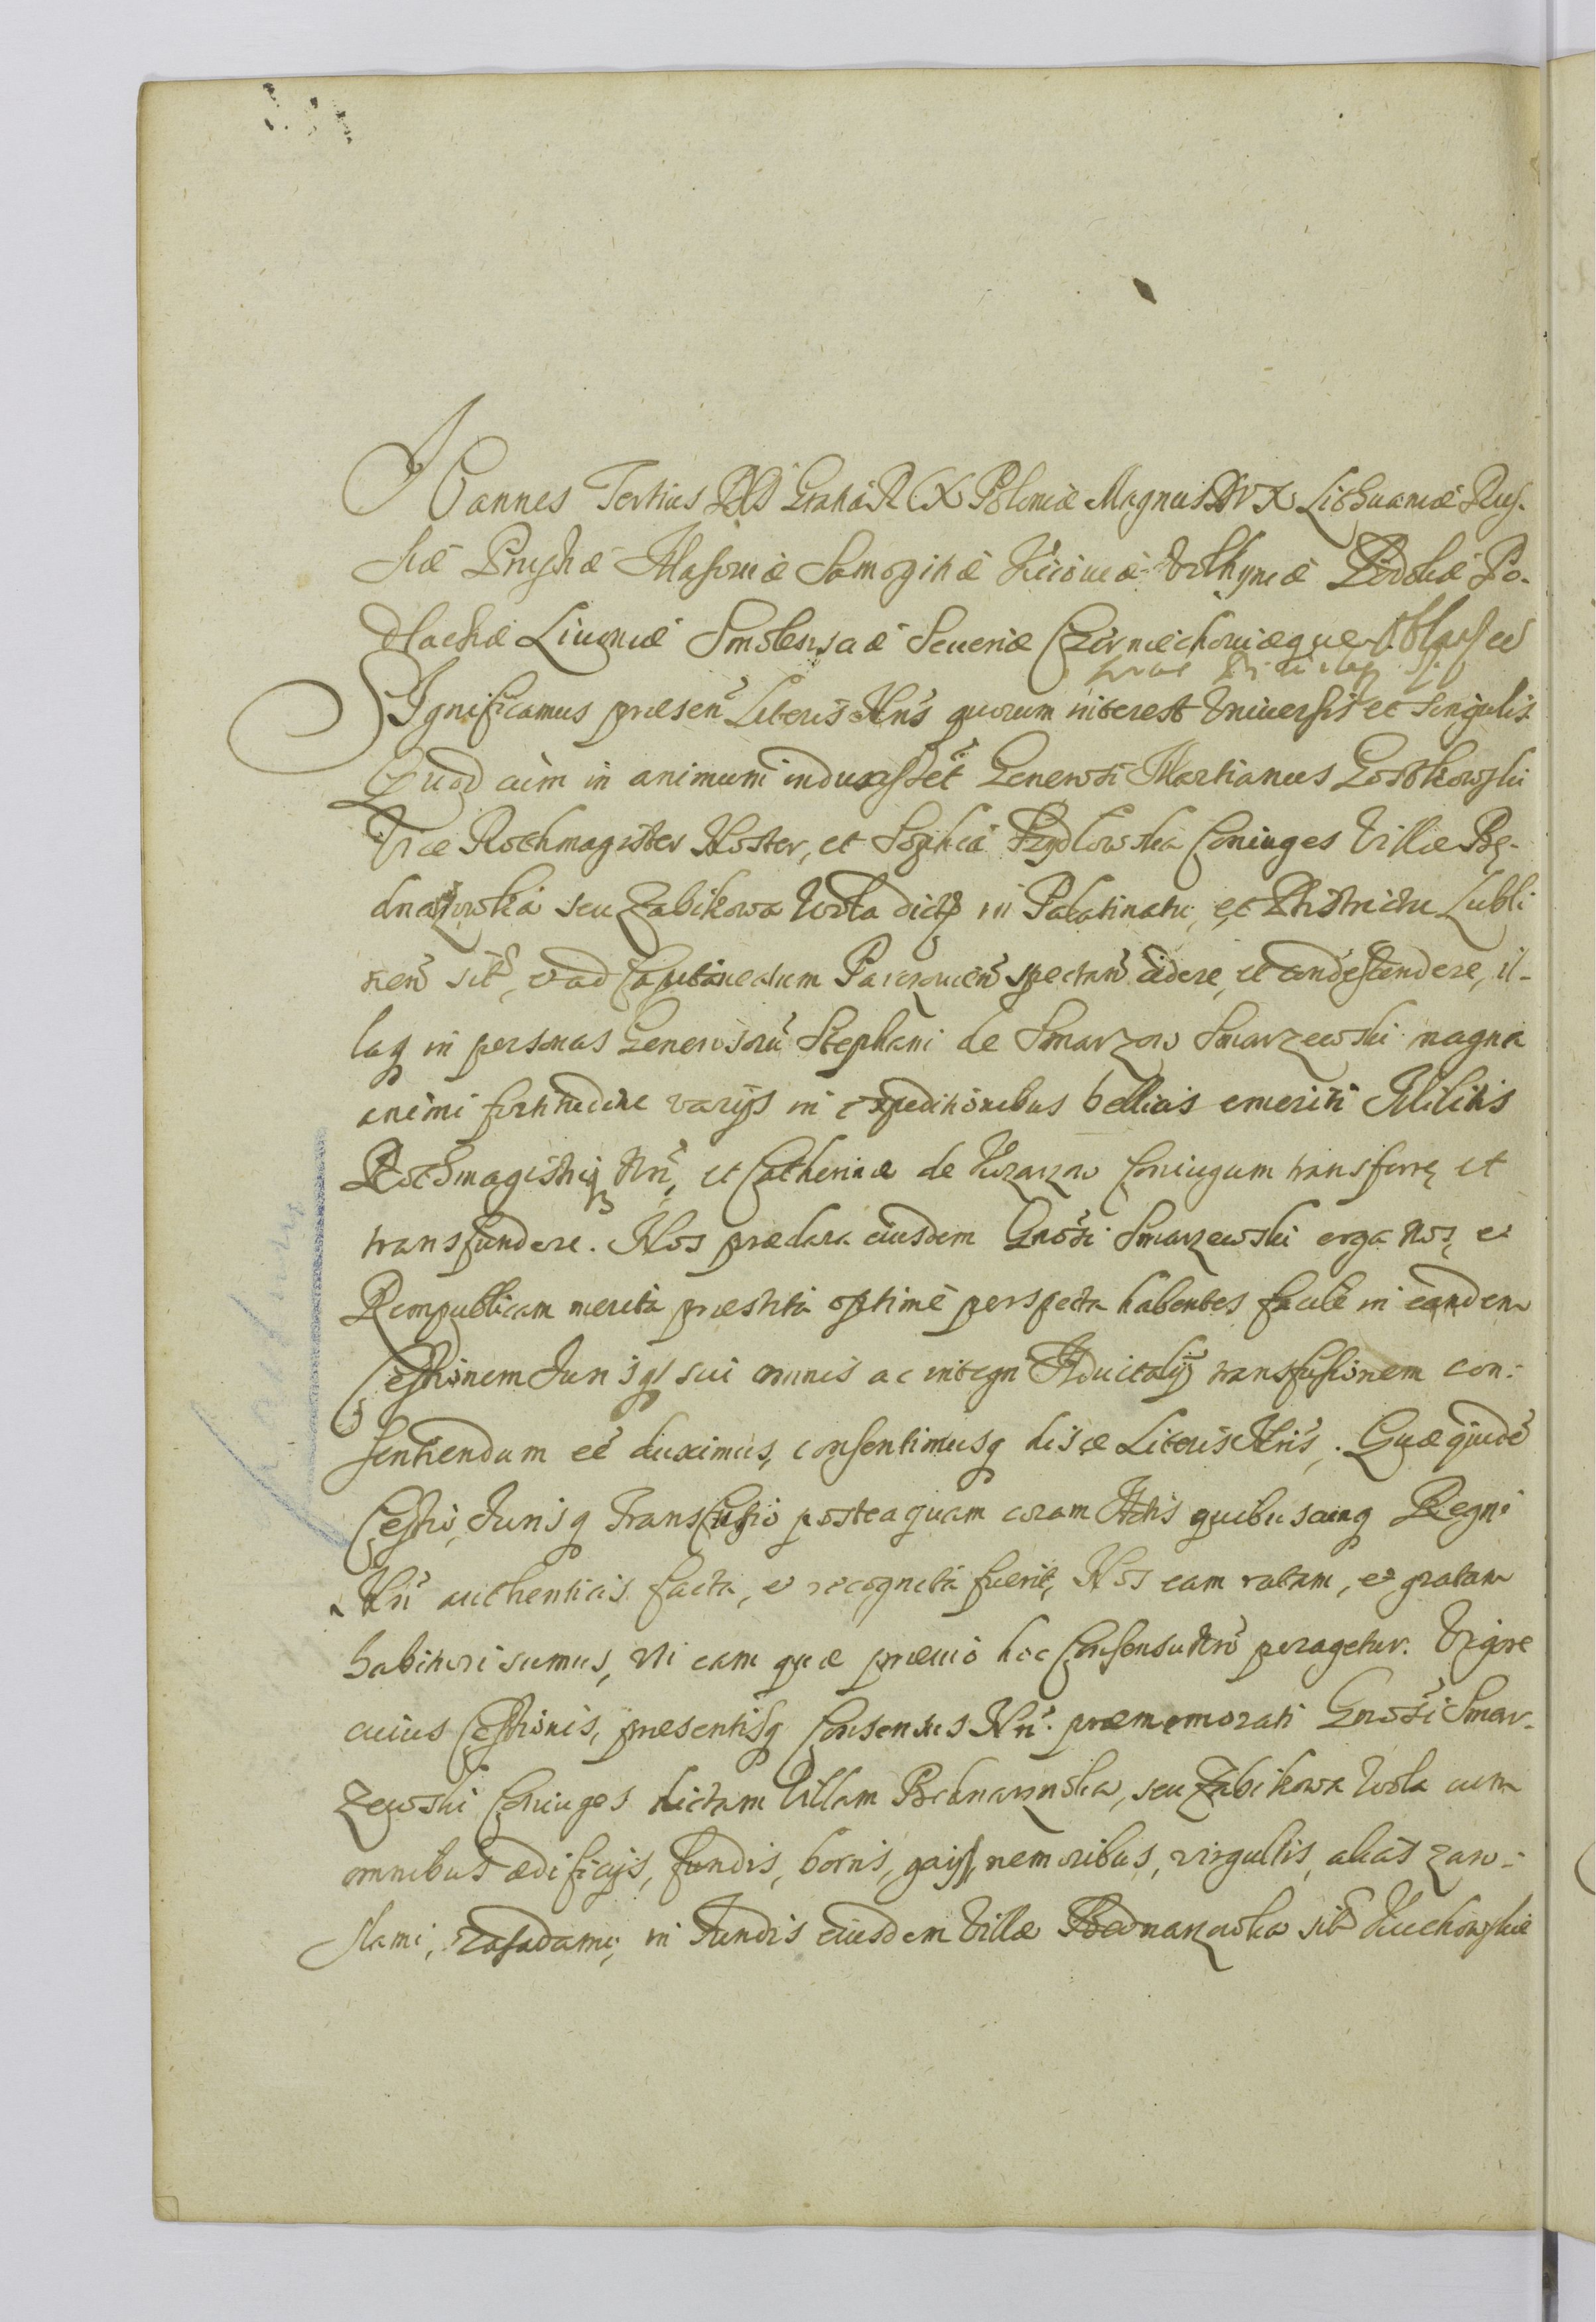 IOannes Tertius DEI Gratia REX Poloniæ Magnus DUX Lithuaniæ Rus-
siæ Prussiæ Masoviæ Samogitiæ Kiioviæ Volhyniæ Podoliæ Po-
dlachiæ Livoniæ Smolensciæ Severiæ Czerniechoviæque
SIgnificamus præsen Literis Nris quorum interest Universis et singulis
Quod cum in animum induxissēt Generosi Martianus Gostkowski
Vice Rothmagister Noster, et Sophia Szydlowska Coniuges Villæ Be-
dnarzowska seu Zabikowa Wola dictæ in Palatinatu, et Districtu Lubli
nen sitæ, et ad Capitaneatum Parczovien spectan cedere, et condescendere, il-
lāq in personas Generosorū Stephani de Smarzow Smarzewski magna
animi fortitudine varijs in expeditionibus bellicis emeriti Militis
Rothmagistriq Nri, et Catherinæ de Coniugum transferre et
transfundere. Nos præclara eiusdem Gnosi Smarzewski erga Nos, et
Rempublicam merita præstita optime perspecta habentes facile in eandem
Cessionem Jurisq sui omnis ac integri Advitalis transfusionem con-
sentiendum eē duximus, consentimusq hisce Literis Nris. Quæquidē
Cessio, Jurisq Transfusio posteaquam coram Actis quibuscunq Regni
Nri authenticis facta, et recognita fuerit, Nos eam ratam, et gratam
habituri sumus, uti eam quæ prævio hoc Consensu Nro peragetur. Vigore
cuius Cessionis, præsentisq Consensus Nri præmemorati Gnosi Smar-
zewski Coniuges dictam Villam Bednarzowska, seu Zabikowa Wola cum
omnibus ædificijs, fundis, hortis, gaijs, nemoribus, virgultis, alias zaro-
slami, zasadami, in fundis eiusdem Villæ Bednarzowska sitis